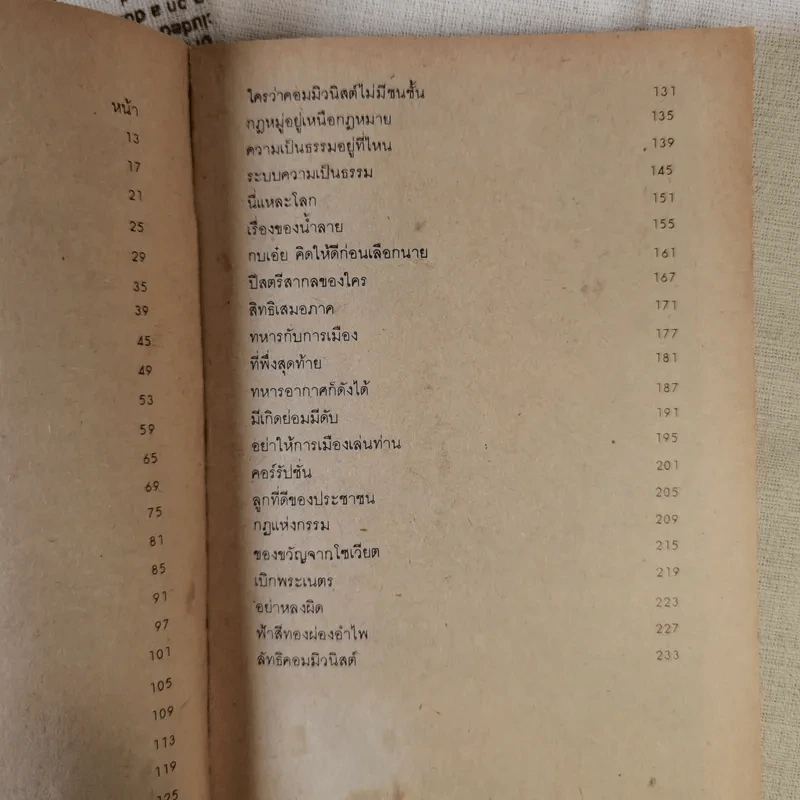 หน้า
13
17
21
25
29
35
39
45
49
53
59
65
69
75
81
85
91
97
101
105
109
113
119
125
ใครว่าคอมมิวนิสต์ไม่มีชนชั้น 131
กฎหมู่อยู่เหนือกฎหมาย 135
ความเป็นธรรมอยู่ที่ไหน 139
ระบบความเป็นธรรม 145
นี่แหละโลก 151
เรื่องของน้ำลาย 155
กบเอ๋ย คิดให้ดีก่อนเลือกนาย 161
ปีสตรีสากลของใคร 167
สิทธิเสมอภาค 171
ทหารกับการเมือง 177
ที่พึ่งสุดท้าย 181
ทหารอากาศก็ดังได้ 187
มีเกิดย่อมมีดับ 191
อย่าให้การเมืองเล่นท่าน 195
คอร์รัปชั่น 201
ลูกที่ดีของประชาชน 205
กฎแห่งกรรม 209
ของขวัญจากโซเวียต 215
เบิกพระเนตร 219
อย่าหลงผิด 223
ฟ้าสีทองผ่องอำไพ 227
ลัทธิคอมมิวนิสต์ 233